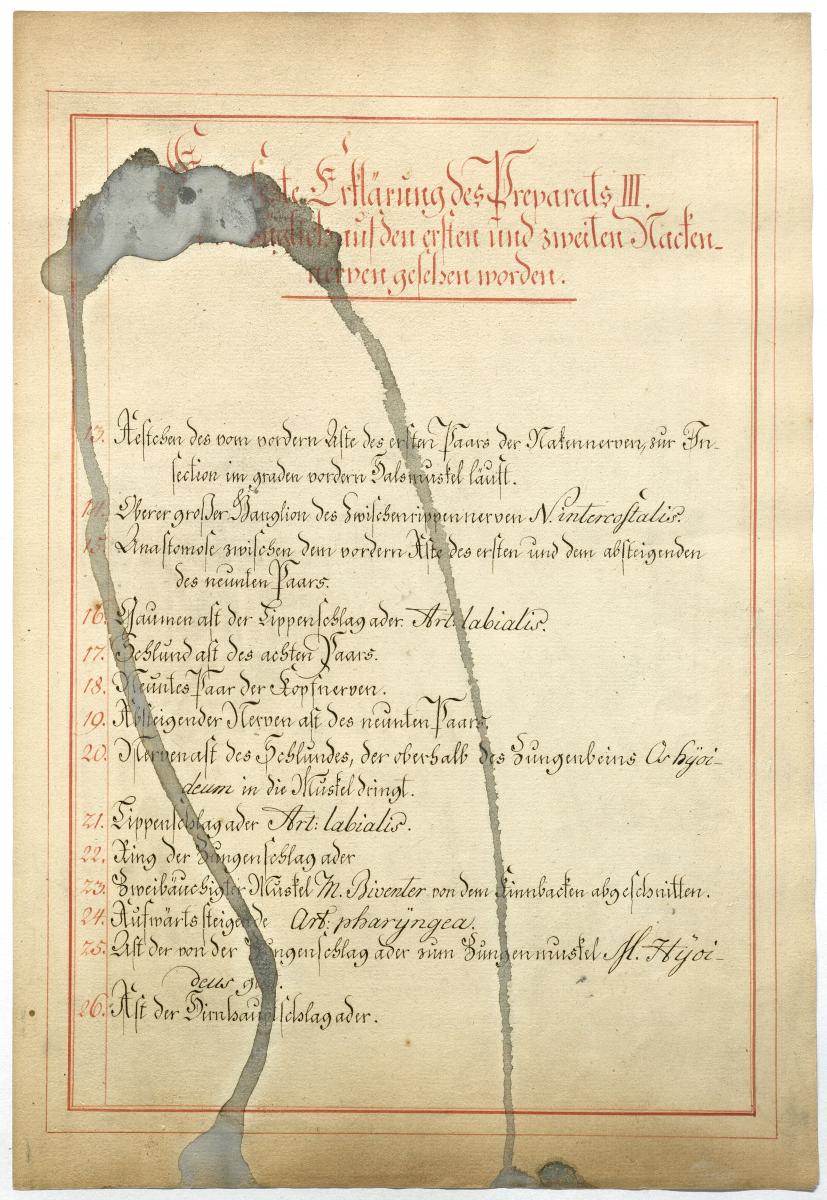 te Erklärung des Preparats III.
aus den ersten und zweiten Nacken-
nerven gesehen worden.
13. Aestchen des vom vordern Aste des ersten Paars der Nakennerven, zur In-
section im graden vordern Halsmuskel läuft.
14. Oberer großer Ganglion des Zwischenrippennerven N intercostalis.
15. Anastomose zwischen dem vordern Aste des ersten und dem absteigenden
des neunten Paars.
16. Gaumen ast der Lippenschlag ader. Art: labialis.
17. Schlund ast des achten Paars.
18. Neuntes Paar der Kopfnerven.
19. Absteigender Nerven ast des neunten Paars.
20. Nervenast des Schlundes, der oberhalb des Zungenbeins Os hÿoi-
deum in die Muskel dringt.
21. Lippenschlag ader Art: labialis.
22. Ring der Zungenschlag ader
23. Zweibäuchigter Muskel M. Biventer von dem Kinnbacken abgeschnitten.
24. Aufwärtssteigende Art: pharÿngea.
25. Ast der von der Zungenschlag ader zum Zungenmuskel M. Hÿoi-
deus
26. Ast der Hirnhautschlag ader.